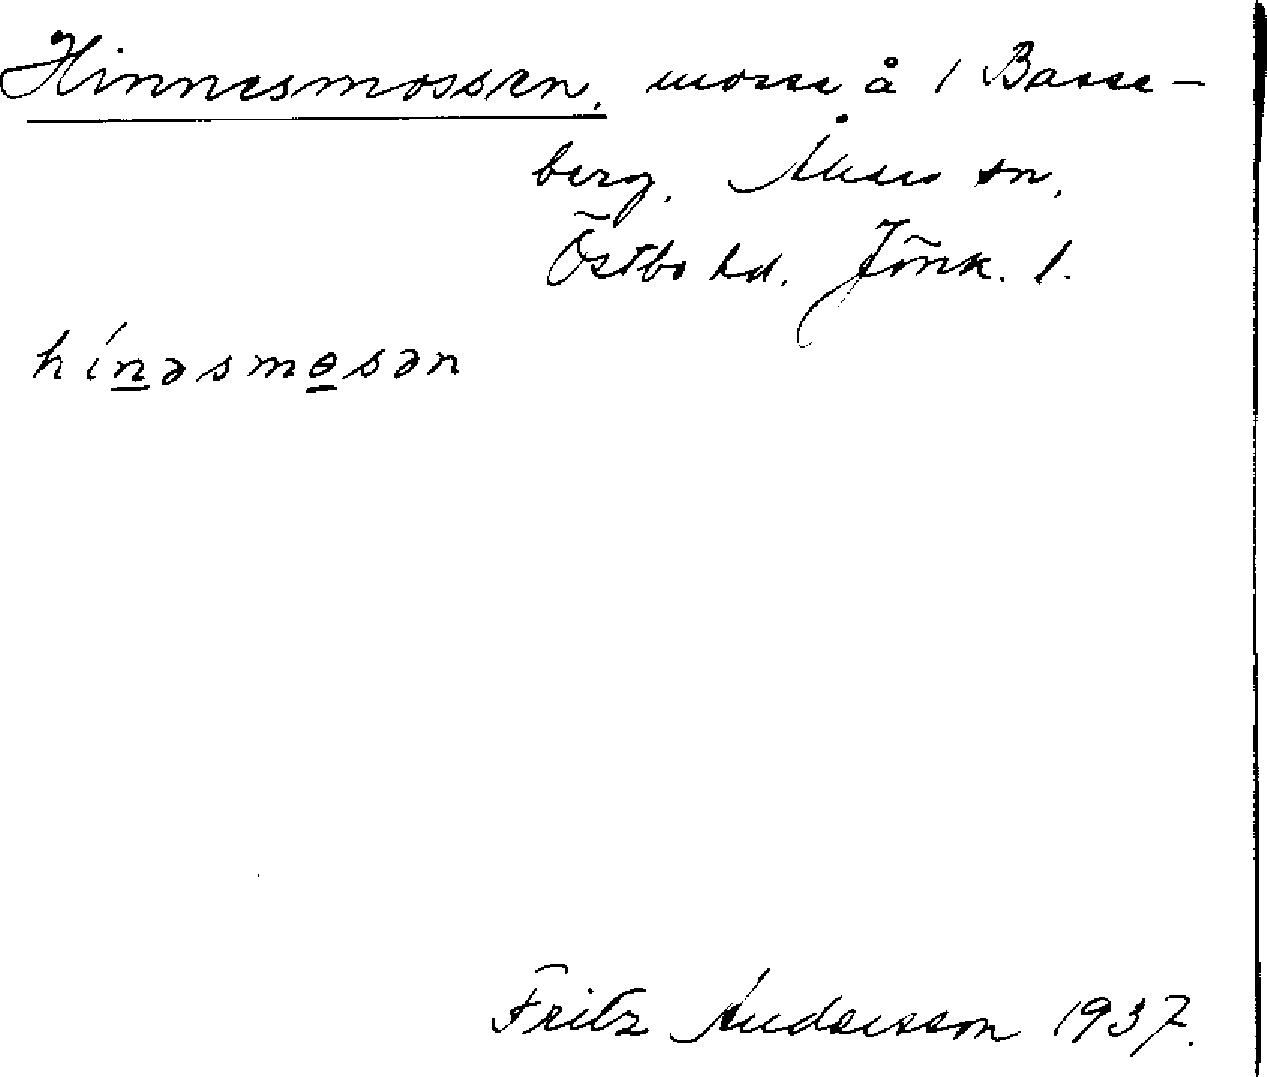 Hinnesmossen, mosse å / Basse-
berg, Åkers sn,
Östbo hd. Jönk. l.
hínəsmɵsən
Fritz Andersson 1937.